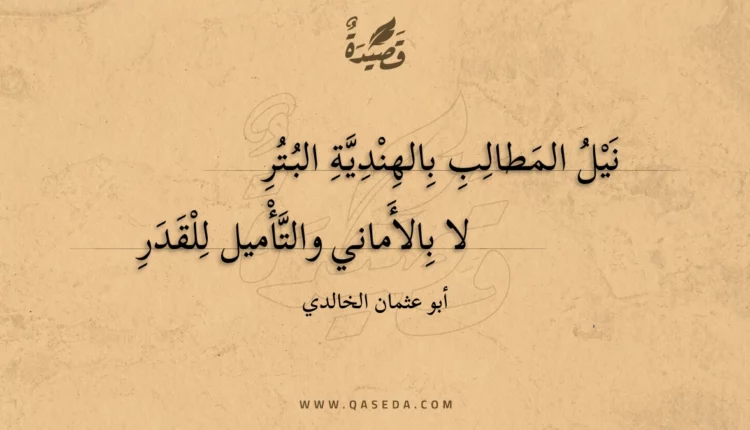 قَصِيْدَةٌ
نَيْلُ المَطالِبِ بِالهِنْدِيَّةِ البُتُرِ
لا بِالأَماني والتَّأْميل لِلْقَدَرِ
أبو عثمان الخالدي
WWW.QASEDA.COM